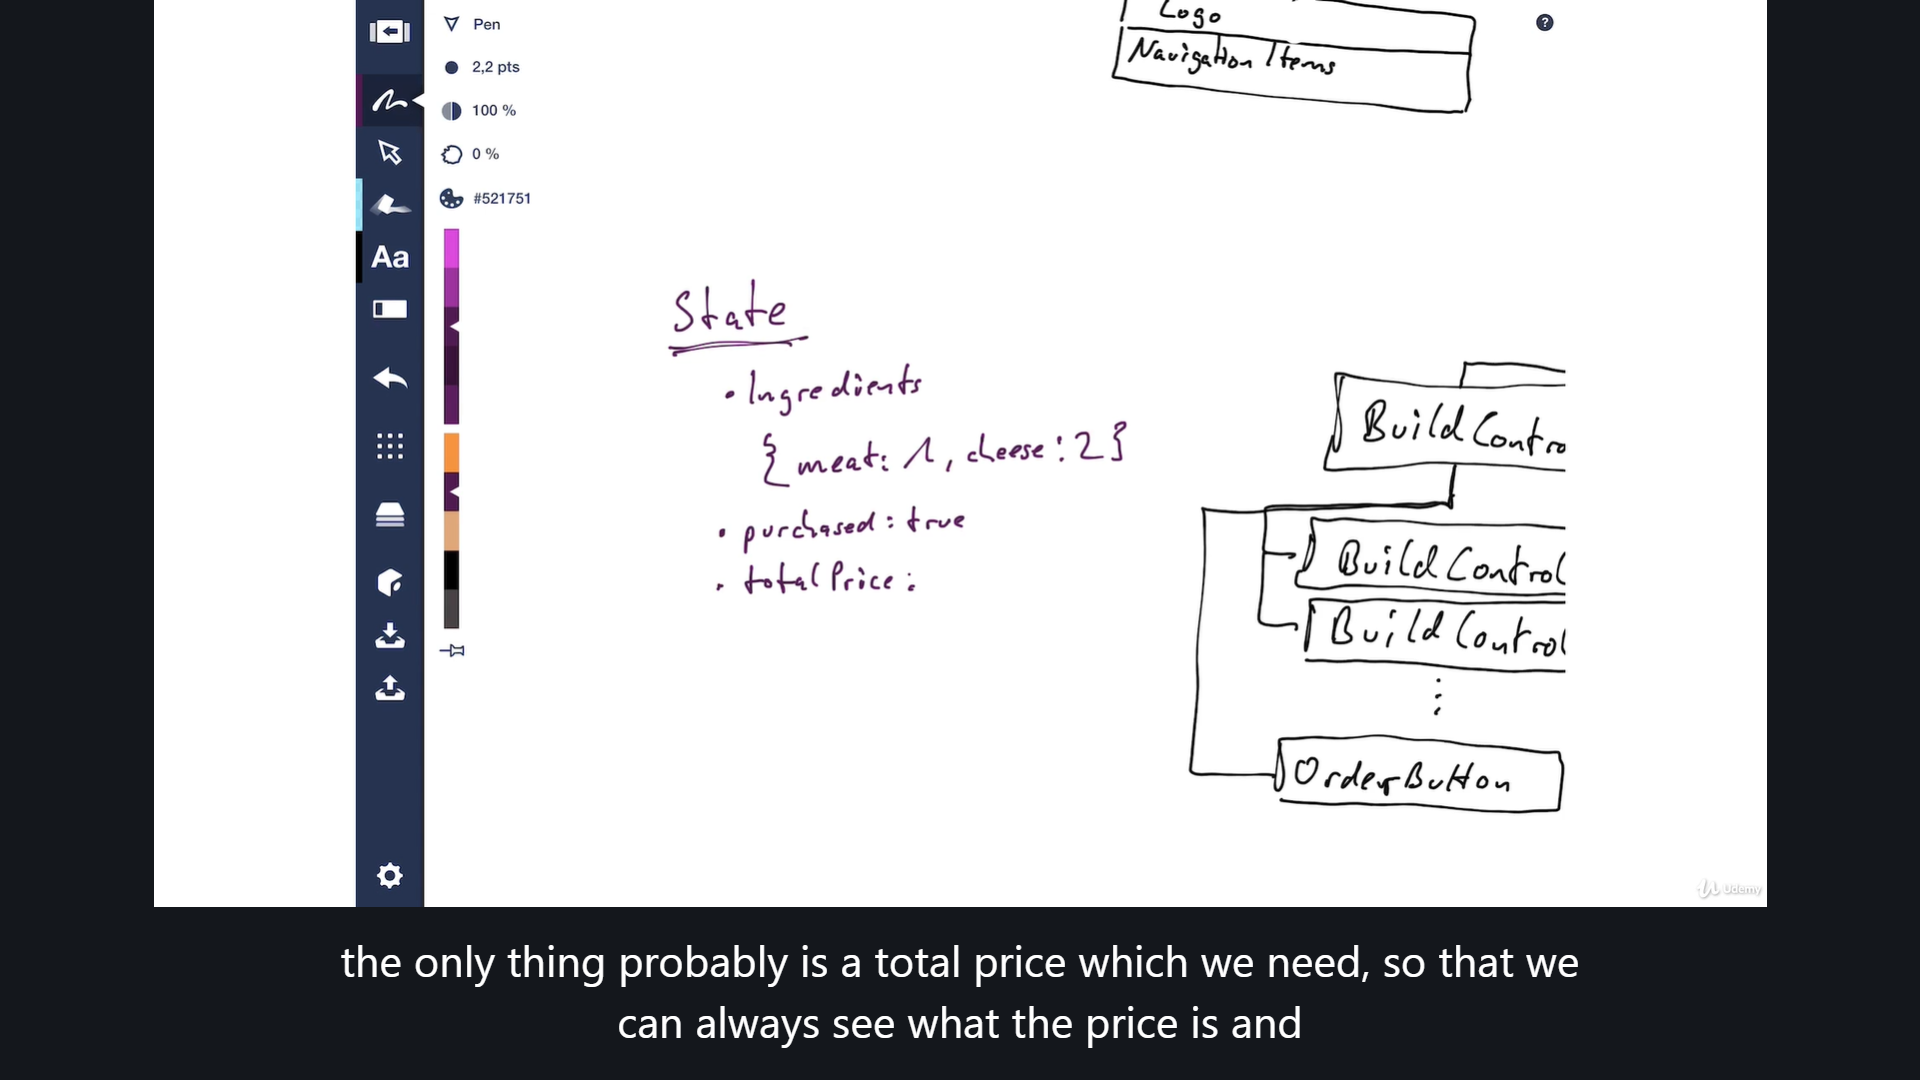 Pen
2,2 pts
100 %
0 %
#521751
Aa
?
Logo
Navigation Items
State
• Ingredients
{ meat: 1, cheese: 2 }
• purchased: true
• totalPrice:
Build Contro
Build Control
Build Control
⋮
OrderButton
Udemy
the only thing probably is a total price which we need, so that we
can always see what the price is and